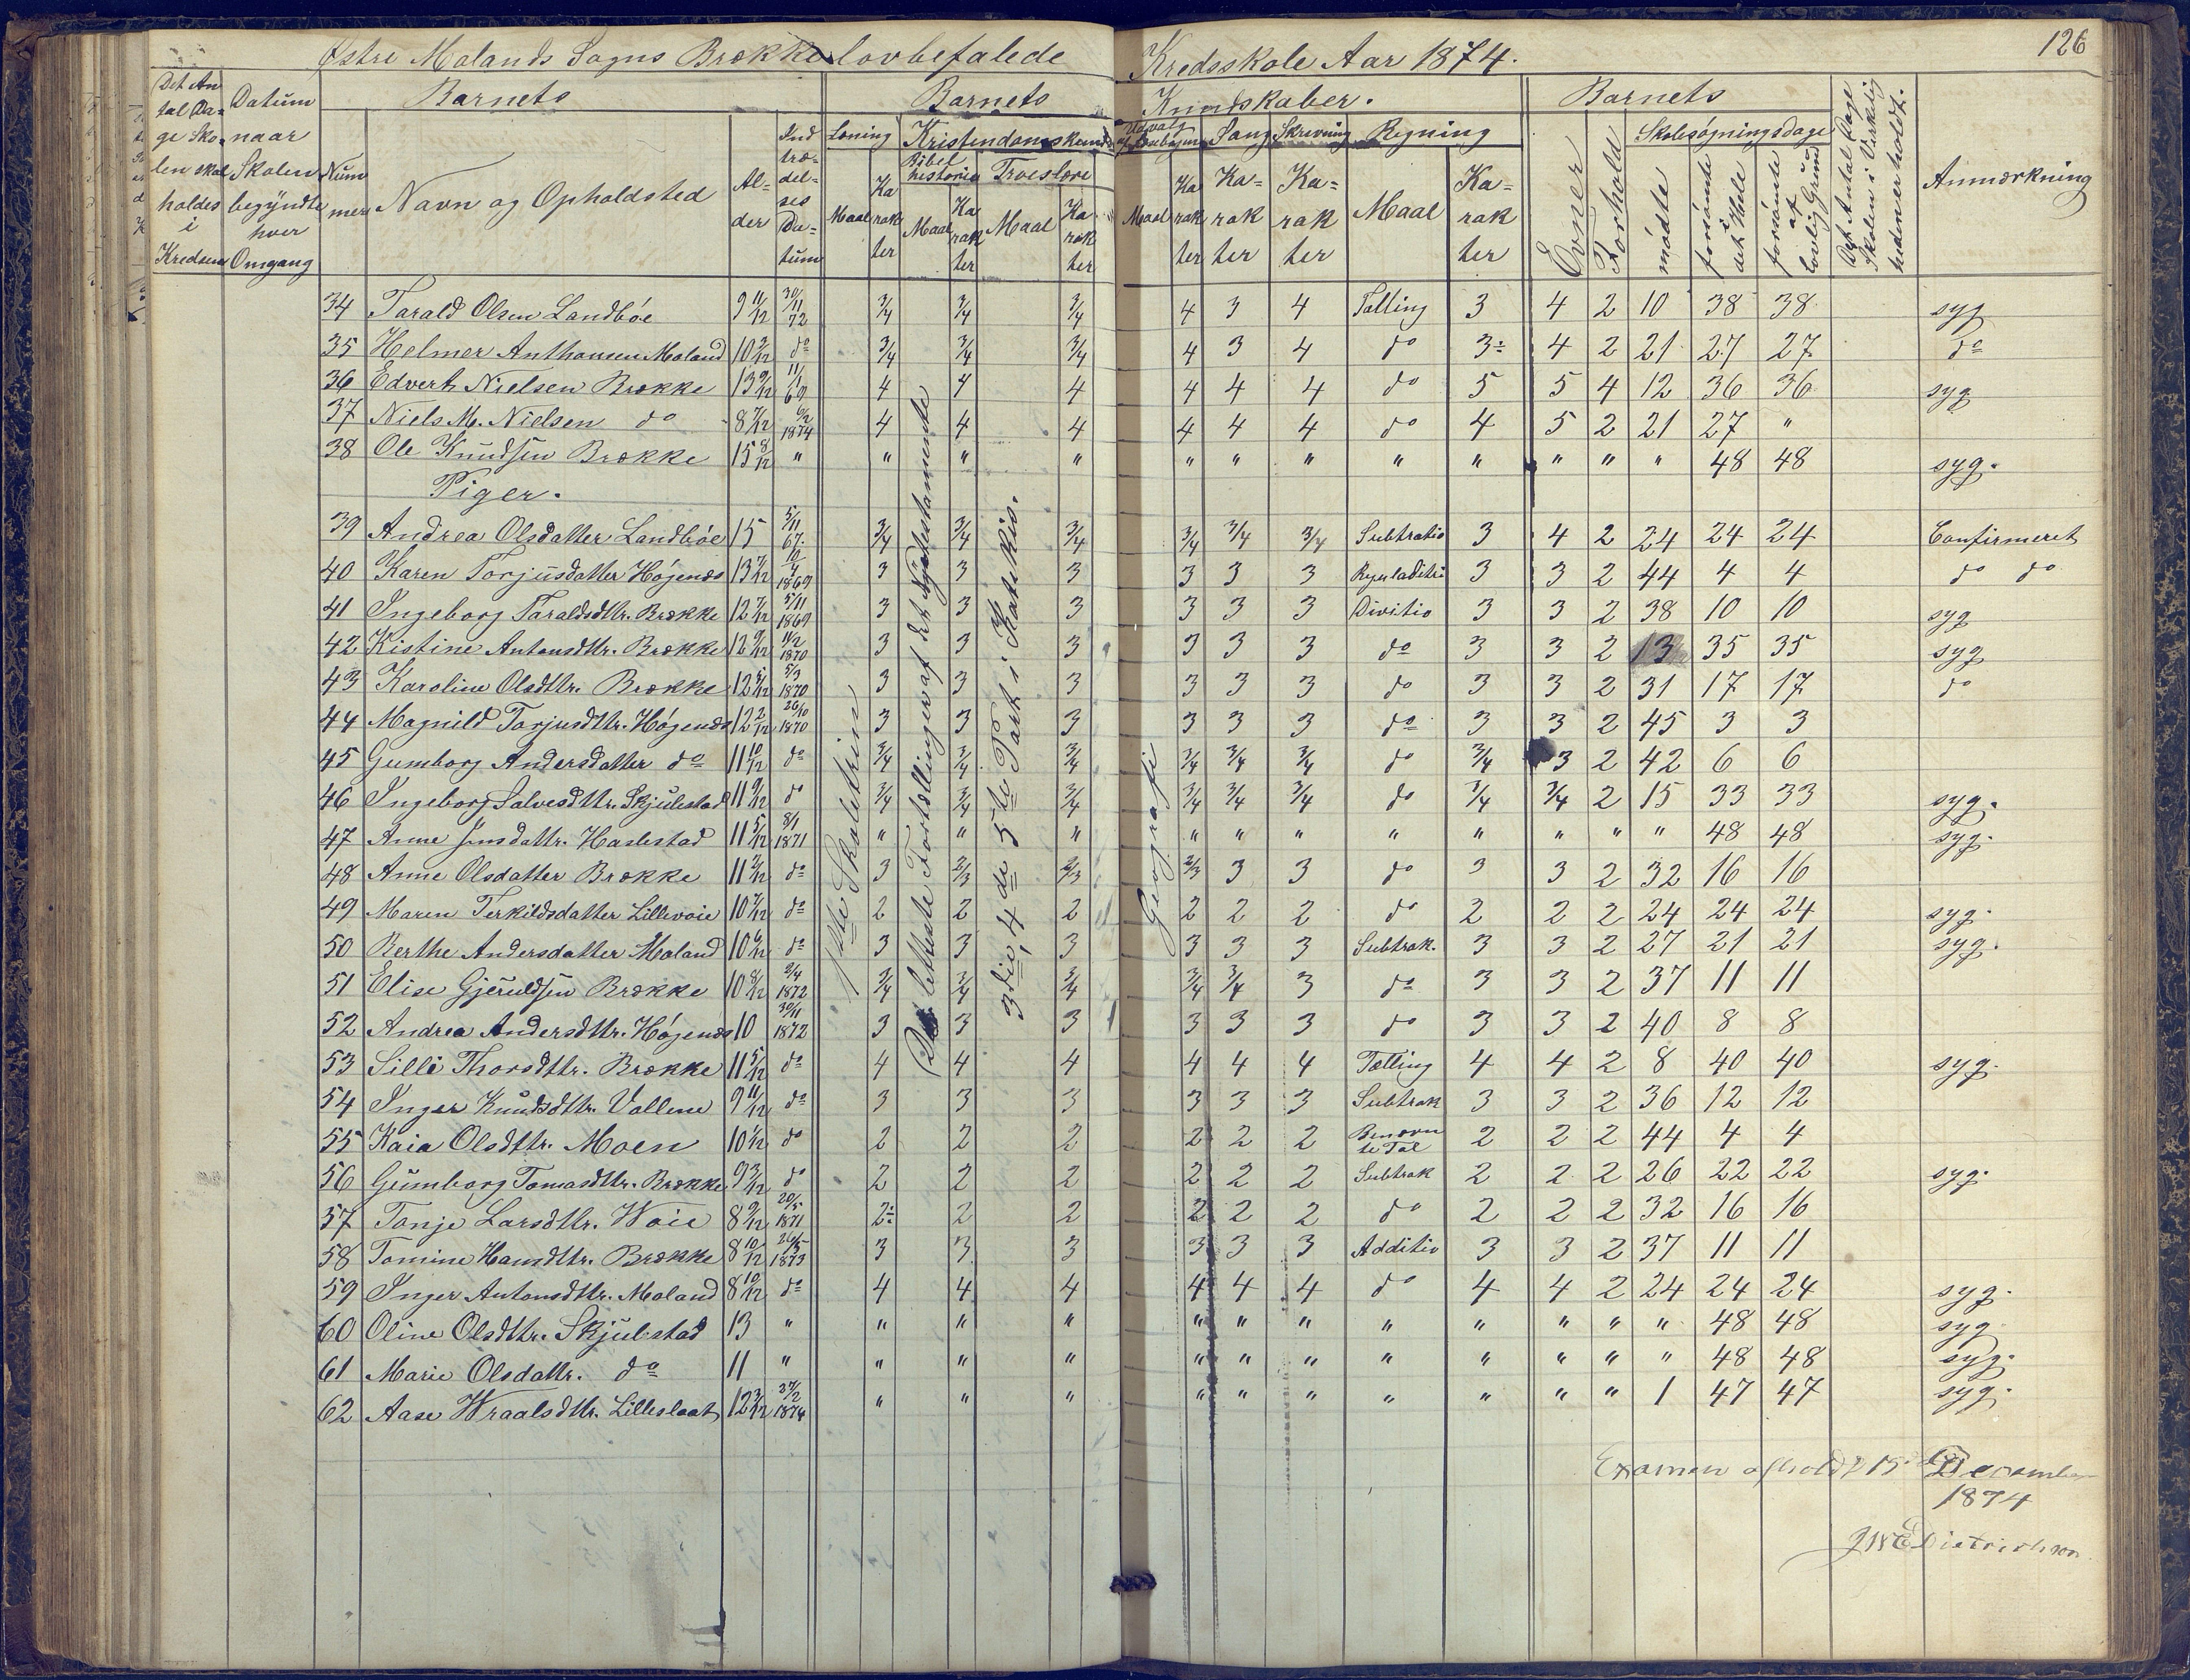 Østre Molands Sogns Brække lovbefalede Kredsskole Aar 1874.
126
Det An tal Da= ge Sko= len skal holdes i Kredsen
Datum naar Skolen begyndte hver Omgang
Barnets
Nummer
Navn og Opholdsted
Al= der
Ind træ= del= ses Da= tum
Barnets Kundskaber.
Læsning
Maal
Ka rak ter
Kristendomskundsk
Bibel historie
Maal
Ka rak ter
Troeslære
Maal
Ka= rak ter
Udvalg af Læsebogen
Maal
Ka rak ter
Sang
Ka= rak ter
Skrivning
Ka= rak ter
Regning
Maal
Ka= rak ter
Barnets
Evner
Forhold
Skolesøgningsdage
mødte
forsømte i det Hele
forsømte af lovlig Grund
Det Antal Dage Skolen i Virkelig heden er holdt.
Anmærkning
34 Tarald Olsen Landbøe 9 11/12 30/11 72 3/4 3/4 3/4 4 3 4 Tælling 3 4 2 10 38 38 syg
35 Helmer Anthonsen Moland 10 2/12 do 3/4 3/4 3/4 4 3 4 do 3÷ 4 2 21 27 27 do
36 Edvert Nielsen Brække 13 9/12 11/1 69 4 4 4 4 4 4 do 5 5 4 12 36 36 syg
37 Niels M. Nielsen do 8 7/12 6/2 1874 4 4 4 4 4 4 do 4 5 2 21 27 "
38 Ole Knudsen Brække 15 8/12 " " " " " " " " " " " " 48 48 syg.
Piger.
39 Andrea Olsdatter Landbøe 15 5/11 67 3/4 3/4 3/4 3/4 3/4 3/4 Subtratio 3 4 2 24 24 24 Confirmeret
40 Karen Torjusdatter Høgenæs 13 7/12 1869 3 3 3 3 3 3 3 3 2 44 4 4 do do
41 Ingeborg Taraldsdttr. Brække 12 7/12 5/11 1869 3 3 3 3 3 3 Divitio 3 3 2 38 10 10 syg
42 Kistine Antonsdttr. Brække 12 9/12 11/2 1870 3 3 3 3 3 3 do 3 3 2 13 35 35 syg
43 Karoline Olsdttr. Brække 12 5/12 5/3 1870 3 3 3 3 3 3 do 3 3 2 31 17 17 do
44 Magnild Torjusdttr. Høgenæs 12 2/12 26/10 1870 3 3 3 3 3 3 do 3 3 2 45 3 3
45 Gumborg Andersdatter do 11 10/12 do 3/4 3/4 3/4 3/4 3/4 3/4 do 3/4 3 2 42 6 6
46 Ingeborg Salvesdttr. Skjulestad 11 9/12 do 3/4 3/4 3/4 3/4 3/4 3/4 do 3/4 3/4 2 15 33 33 syg.
47 Anne Jensdattr. Haslestad 11 5/12 8/1 1871 " " " " " " " " " " " 48 48 syg.
48 Anne Olsdatter Brække 11 2/12 do 3 2/3 2/3 2/3 3 3 do 3 3 2 32 16 16
49 Maren Terkildsdatter Lillevoie 10 7/12 do 2 2 2 2 2 2 do 2 2 2 24 24 24 syg.
50 Berthe Andersdatter Moland 10 6/12 do 3 3 3 3 3 3 Subtrak. 3 3 2 27 21 21 syg.
51 Elise Gjeruldsen Brække 10 8/12 2/4 1872 3/4 3/4 3/4 3/4 3/4 3 do 3 3 2 37 11 11
52 Andrea Andersdttr. Høgenæs 10 30/11 1872 3 3 3 3 3 3 do 3 3 2 40 8 8
53 Silli Thorsdttr. Brække 11 5/12 do 4 4 4 4 4 4 Tælling 4 4 2 8 40 40 syg.
54 Inger Knudsdttr. Vallene 9 11/12 do 3 3 3 3 3 3 Subtrak 3 3 2 36 12 12
55 Kaia Olsdttr. Moen 10 1/12 do 2 2 2 2 2 2 Benævn te Tal 2 2 2 44 4 4
56 Gumborg Tomasdttr. Brække 9 3/12 do 2 2 2 2 2 2 Subtrak 2 2 2 26 22 22 syg.
57 Tonje Larsdttr. Woie 8 9/12 20/5 1871 2÷ 2 2 2 2 2 do 2 2 2 32 16 16
58 Tomine Hansdttr. Brække 8 10/12 26/5 1873 3 3 3 3 3 3 Additio 3 3 2 37 11 11
59 Inger Antonsdttr. Moland 8 10/12 do 4 4 4 4 4 4 do 4 4 2 24 24 24 syg.
60 Oline Olsdttr. Skjulestad 13 " " " " " " " " " " " " 48 48 syg
61 Marie Olsdattr. do 11 " " " " " " " " " " " " 48 48 syg.
62 Aase Wraalsdttr. Lilleslaat 12 3/12 27/2 1874 " " " " " " " " " " 1 47 47 syg.
1ste Skoletrin
De letteste Fortællinger af det Nye testamente
3die, 4de 5te Part i Katekis.
Geografi
Examen afholdt 15 December
1874
JNE Dietrichson